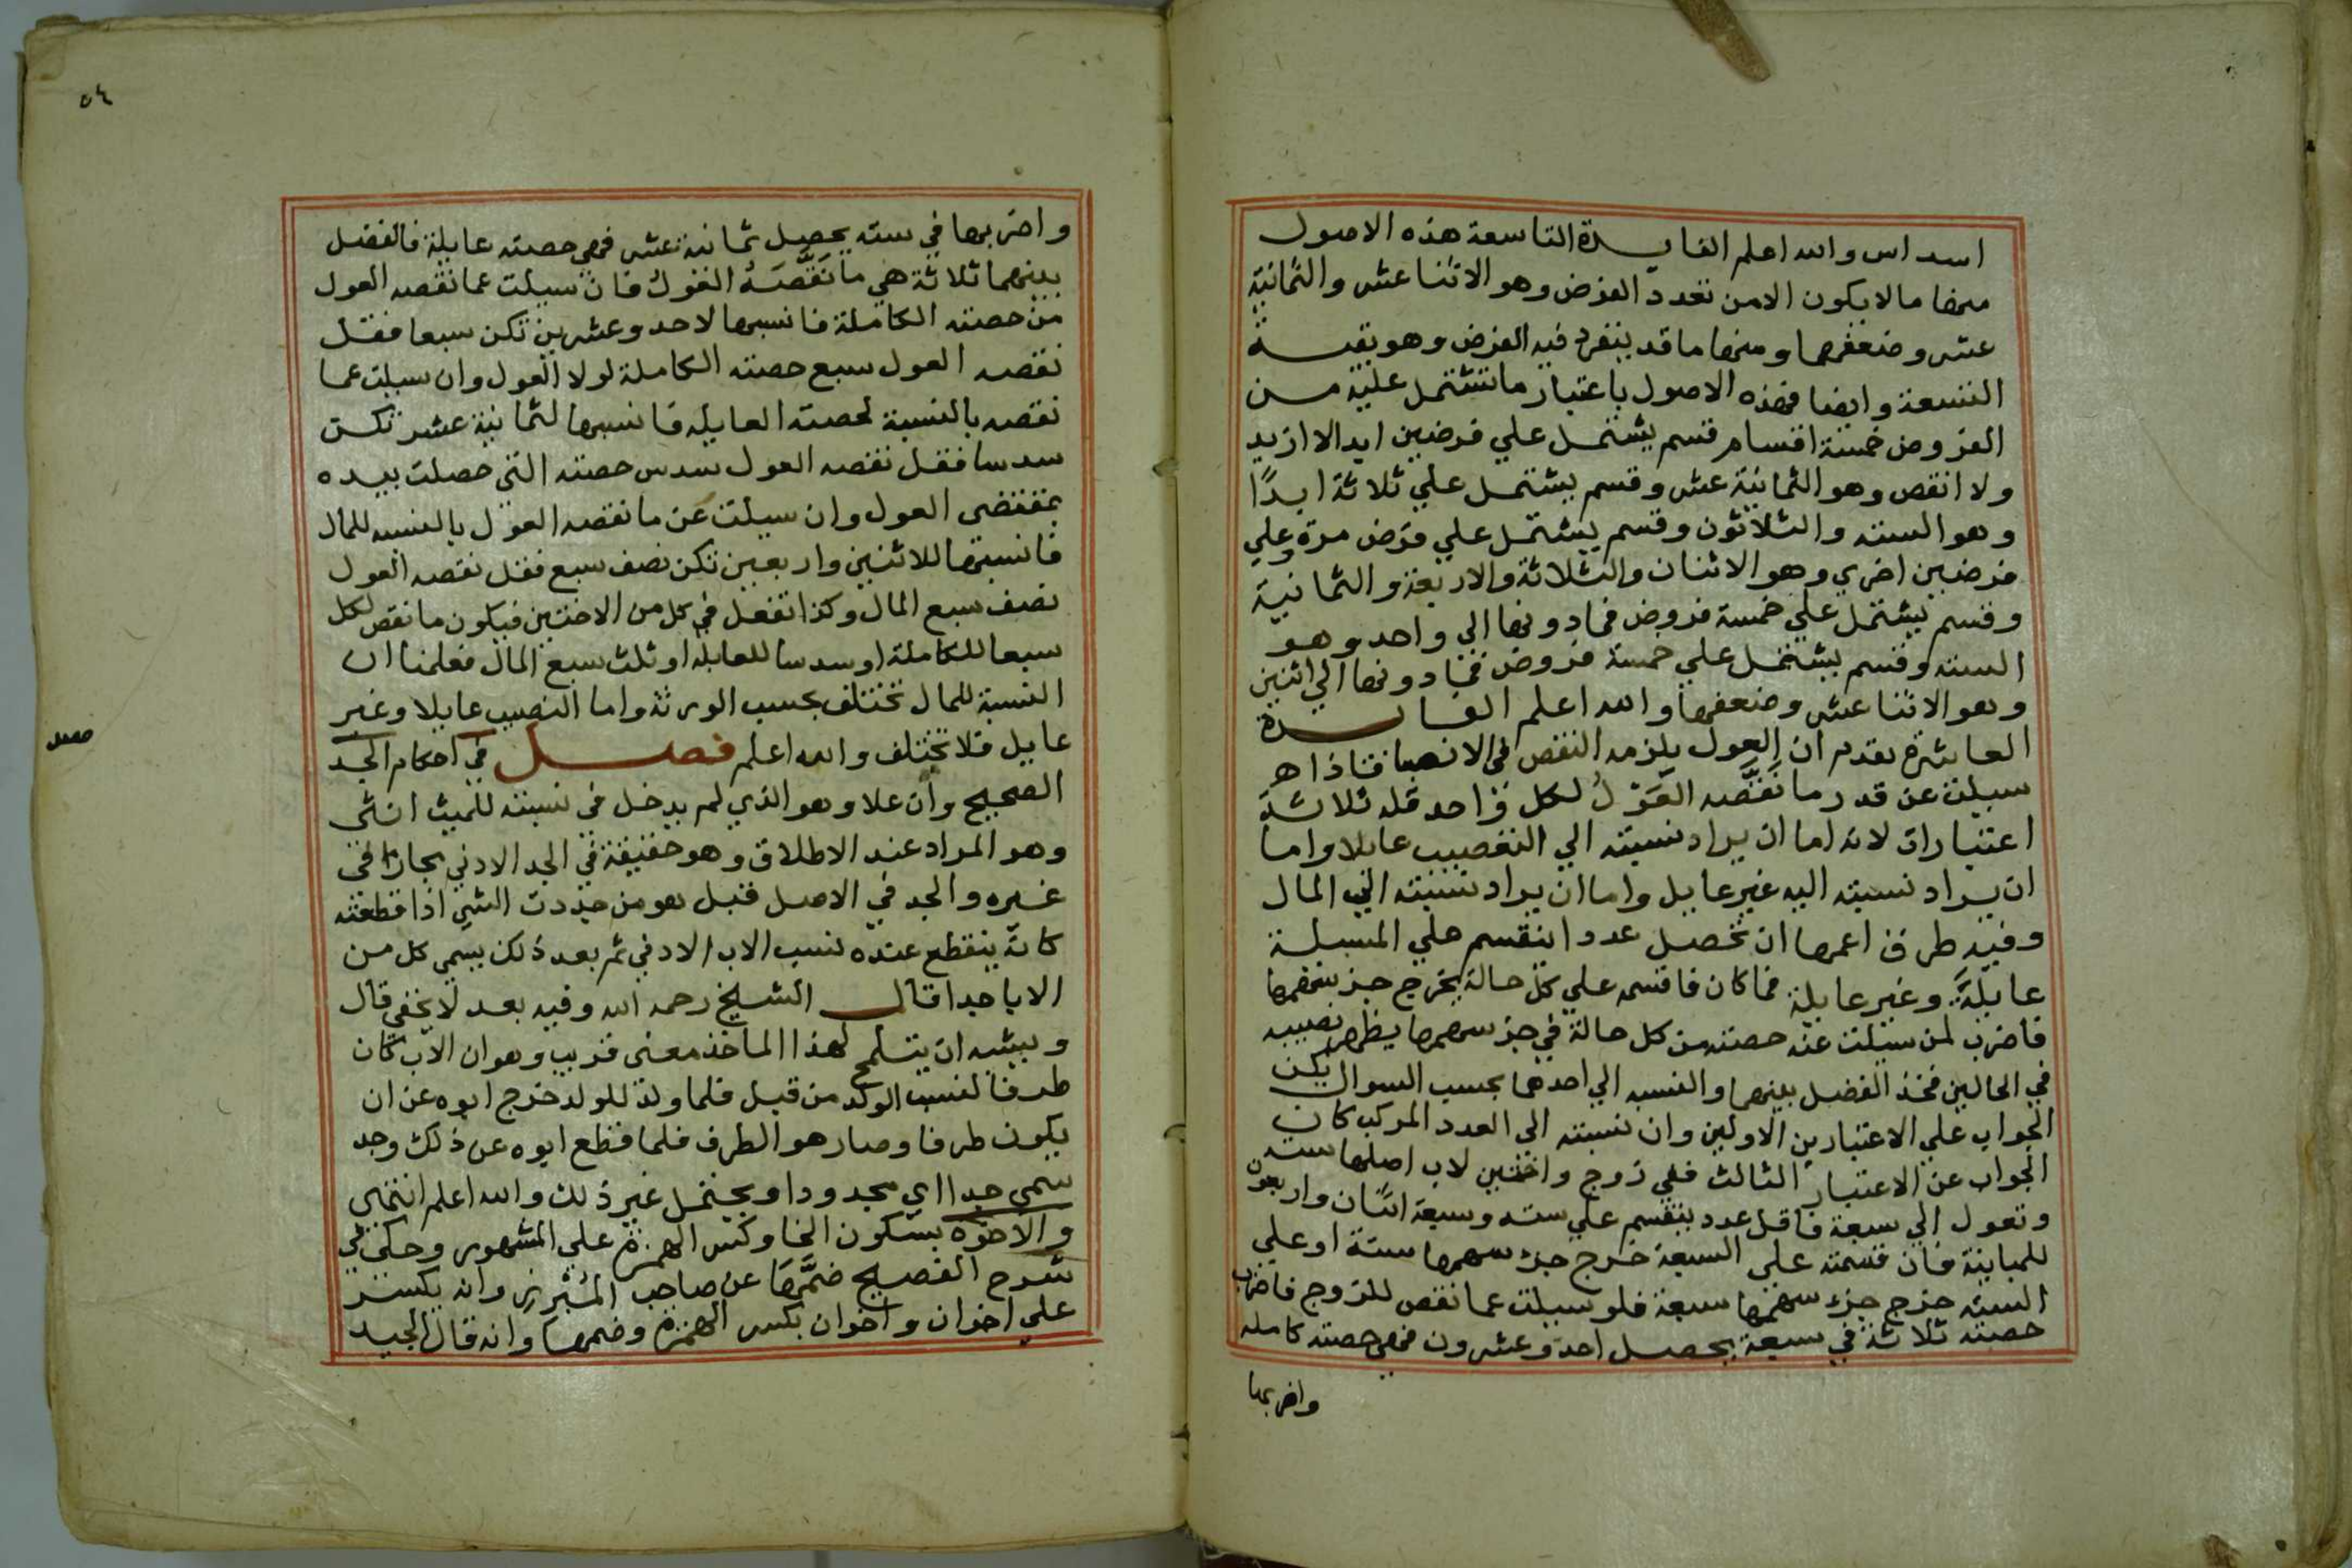 اسداس والله اعلم الفايدة التاسعة هذه الاصول
منها ما لا يكون الا من تعدد الفرض وهو الاثنا عشر والثمانية
عشر وضعفهما ومنها ما قد ينفرد فيه الفرض وهو بقية
التسعة وايضا فهذه الاصول باعتبار ما تشتمل عليه من
الفروض خمسة اقسام قسم يشتمل علي فرضين ابدا لا ازيد
ولا انقص وهو الثمانية عشر وقسم يشتمل علي ثلاثة ابدًا
وهو الستة والثلاثون وقسم يشتمل علي فرض مرة وعلي
فرضين اخري وهو الاثنان والثلاثة والاربعة والثمانية
وقسم يشتمل علي خمسة فروض فما دونها الي واحد وهو
الستة وقسم يشتمل علي خمسة فروض فما دونها الي اثنين
وهو الاثنا عشر وضعفها والله اعلم الفايدة
العاشرة تقدم ان العول يلزمه النقص في الانصبا فاذا
سيلت عن قدر ما نَقَّصه العَوْلُ لكل واحد فله ثلاثة
اعتبارات لانه اما ان يراد نسبته الي النصيب عايلا واما
ان يراد نسبته اليه غير عايل واما ان يراد نسبته الي المال
وفيه طرق اعمها ان تحصل عددا ينقسم علي المسيلة
عايلة وغير عايلة فما كان فاقسمه علي كل حالة يخرج جز سهمها
فاضرب لمن سيلت عنه حصته من كل حالة في جز سهمها يظهر نصيبه
في الحالين فخذ الفضل بينهما وانسبه الي احدهما بحسب السوال يكن
الجواب علي الاعتبارين الاولين وان نسبته الي العدد المركب كان
الجواب عن الاعتبار الثالث ففي زوج واختين لاب اصلها ستة
وتعول الي سبعة فاقل عدد ينقسم علي ستة وسبعة اثنان واربعون
للمباينة فان قسمته علي السبعة خرج جزء سهمها ستة او علي
الستة خرج جزء سهمها سبعة فلو سيلت عما نقص للزوج فاضرب
حصته ثلاثة في سبعة يحصل احد وعشرون فهي حصته كاملة
واضربها
٥٤
واضربها في ستة يحصل ثمانية عشر فهي حصته عايلة فالفضل
بينهما ثلاثة هي ما نَقَّصَهُ العَوْلُ فان سيلت عما نقصه العول
من حصته الكاملة فانسبها لاحد وعشرين تكن سبعا فقل
نقصه العول سبع حصته الكاملة لولا العول وان سيلت عما
نقصه بالنسبة لحصته العايلة فانسبها لثمانية عشر تكن
سدسا فقل نقصه العول سدس حصته التي حصلت بيده
بمقتضي العول وان سيلت عن ما نقصه العول بالنسبه للمال
فانسبها للاثنين واربعين تكن نصف سبع فقل نقصه العول
نصف سبع المال وكذا تفعل في كل من الاختين فيكون ما نقص لكل
سبعا للكاملة او سدسا للعايلة او ثلث سبع المال فعلمنا ان
النسبة للمال تختلف بحسب الورثة واما النصيب عايلا وغير
عايل فلا تختلف والله اعلم فصل في احكام الجد
الصحيح وان علا وهو الذي لم يدخل في نسبته للميت انثى
وهو المراد عند الاطلاق وهو حقيقة في الجد الادني مجازا في
غيره والجد في الاصل قيل هو من جددت الشي اذا قطعته
كانه ينقطع عنده نسب الاب الادني ثم بعد ذلك يسمي كل من
الابا جدا قال الشيخ رحمه الله وفيه بعد لا يخفي قال
ويشبه ان يتلمح لهذا الماخذ معنى قريب وهو ان الاب كان
طرفا لنسب الولد من قبل فلما ولد للولد خرج ابوه عن ان
يكون طرفا وصار هو الطرف فلما قطع ابوه عن ذلك وجد
سمي جدا اي مجدودا ويحتمل غير ذلك والله اعلم انتهى
والاخوة بسكون الخا وكسر الهمزة علي المشهور وحكي في
شرح الفصيح ضمَّهَا عن صاحب المُبْرِز وانه يكسر
علي اخوان واخوان بكسر الهمزة وضمها وانه قال الجيد
فصل